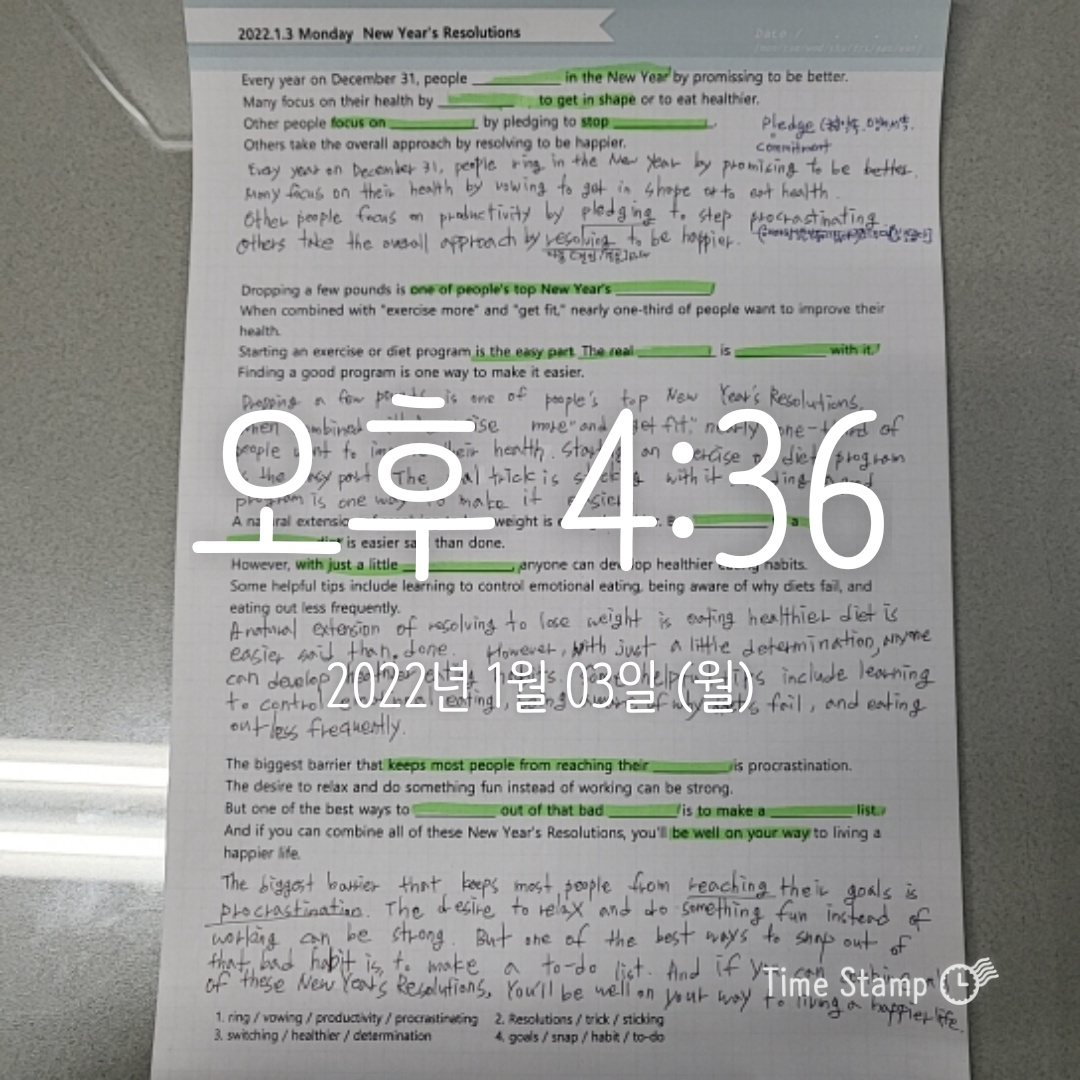 2022.1.3 Monday New Year's Resolutions
Date /
Every year on December 31, people ________ in the New Year by promissing to be better.
Many focus on their health by ________ to get in shape or to eat healthier.
Other people focus on ________ by pledging to stop ________.
Pledge
commitment
Others take the overall approach by resolving to be happier.
Every year on December 31, people ring in the New Year by promising to be better.
Many focus on their health by vowing to get in shape or to eat health
Other people focus on productivity by pledging to step procrastinating
Others take the overall approach by resolving to be happier.
Dropping a few pounds is one of people's top New Year's ________
When combined with "exercise more" and "get fit," nearly one-third of people want to improve their
health.
Starting an exercise or diet program is the easy part. The real ________ is ________ with it.
Finding a good program is one way to make it easier.
Dropping a few pounds is one of people's top New Year's Resolutions.
more" and "get fit," nearly one-third of
people want to their health. an diet program
is the easy part. The trick is with it
program is one way to make it easier
오후 4:36
A natural weight is
is easier than done.
However, with just a little ________, anyone can develop healthier eating habits.
Some helpful tips include learning to control emotional eating, being aware of why diets fail, and
eating out less frequently.
A natural extension of resolving to lose weight is eating healthier diet is
easier said than done. However, with just a little determination, anyone
can develop include learning
2022년 1월 03일 (월)
to control eating, fail, and eating
out less frequently.
The biggest barrier that keeps most people from reaching their ________ is procrastination.
The desire to relax and do something fun instead of working can be strong.
But one of the best ways to ________ out of that bad ________ is to make a ________ list.
And if you can combine all of these New Year's Resolutions, you'll be well on your way to living a
happier life.
The biggest barrier that keeps most people from reaching their goals is
procrastination. The desire to relax and do something fun instead of
working can be strong. But one of the best ways to snap out of
that bad habit is, to make a to-do list. And if you can
of these New Year's Resolutions, You'll be well on your way to living a happier life.
Time Stamp
1. ring / vowing / productivity / procrastinating 2. Resolutions / trick / sticking
3. switching / healthier / determination 4. goals / snap / habit / to-do